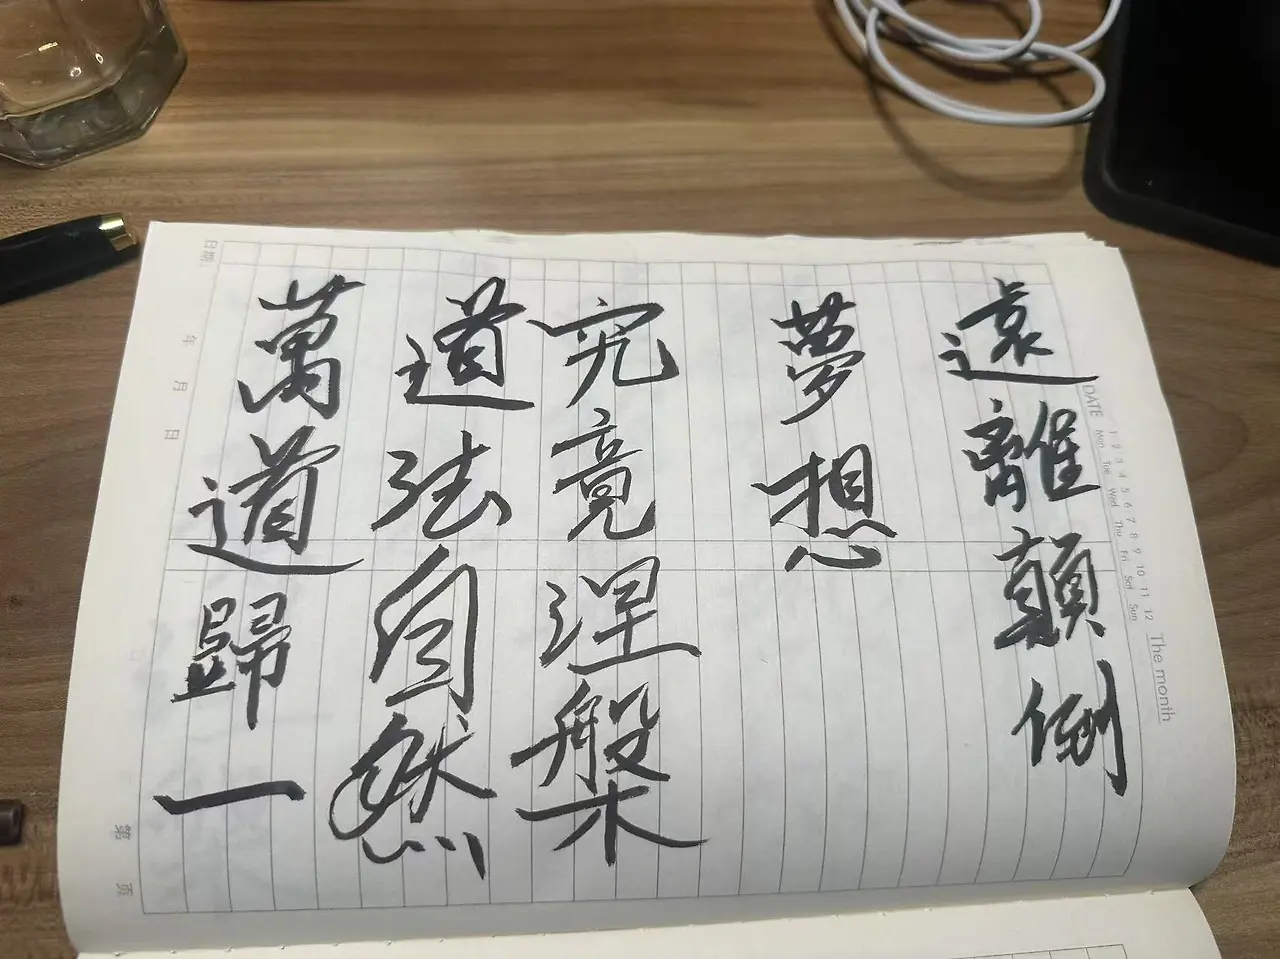 遠離顛倒
夢想
究竟涅槃
道法自然
萬道歸一
DATE
Mon Tue Wed Thu Fri Sat Sun
1 2 3 4 5 6 7 8 9 10 11 12
The month
日期
年 月 日
第 页